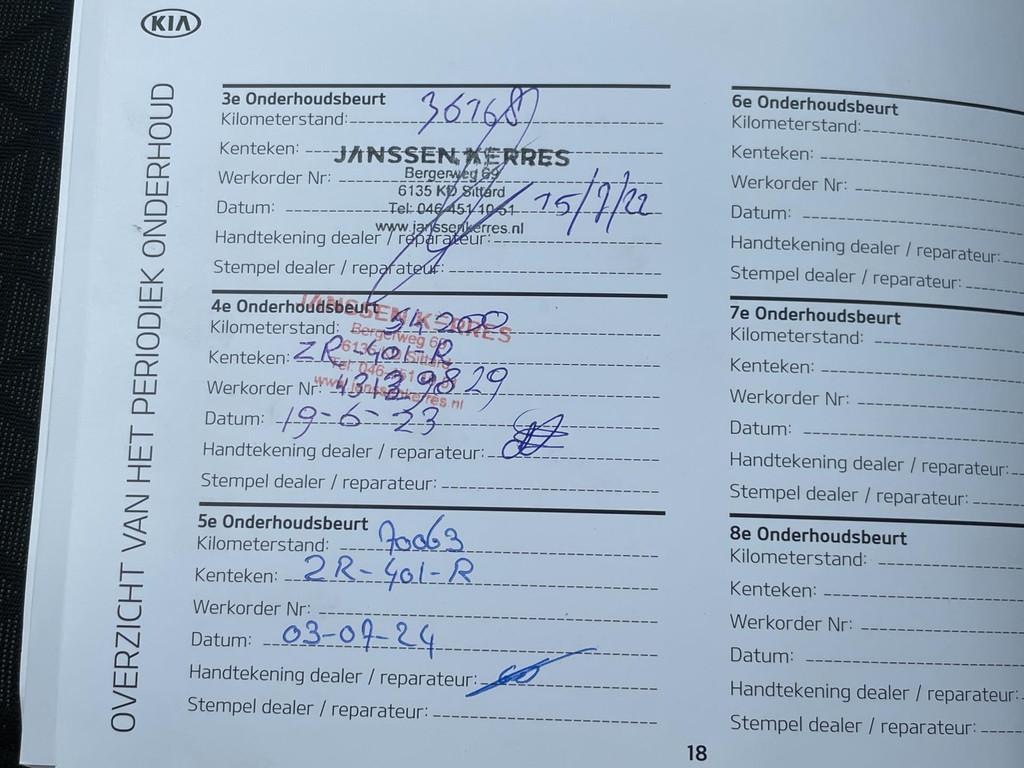 KIA
OVERZICHT VAN HET PERIODIEK ONDERHOUD
3e Onderhoudsbeurt
Kilometerstand:
Kenteken:
JANSSEN KERRES
Bergerweg 69
Werkorder Nr:
6135 KD Sittard
Datum: 15/7/22
Tel: 046-451 10 51
www.janssenkerres.nl
Handtekening dealer / reparateur:
Stempel dealer / reparateur:
4e Onderhoudsbeurt
JANSSEN KERRES
Kilometerstand: 54200
Bergerweg 69
Kenteken: ZR-401-R
6135 KD Sittard
Werkorder Nr: 43139829
www.janssenkerres.nl
Datum: 19-6-23
Handtekening dealer / reparateur:
Stempel dealer / reparateur:
5e Onderhoudsbeurt
Kilometerstand: 70063
Kenteken: ZR-401-R
Werkorder Nr:
Datum: 03-07-24
Handtekening dealer / reparateur:
Stempel dealer / reparateur:
6e Onderhoudsbeurt
Kilometerstand:
Kenteken:
Werkorder Nr:
Datum:
Handtekening dealer / reparateur:
Stempel dealer / reparateur:
7e Onderhoudsbeurt
Kilometerstand:
Kenteken:
Werkorder Nr:
Datum:
Handtekening dealer / reparateur:
Stempel dealer / reparateur:
8e Onderhoudsbeurt
Kilometerstand:
Kenteken:
Werkorder Nr:
Datum:
Handtekening dealer / reparateur:
Stempel dealer / reparateur:
18